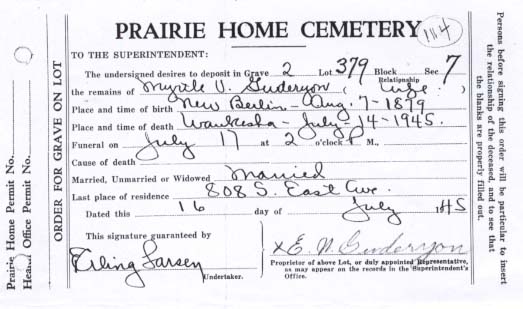 PRAIRIE HOME CEMETERY
1114
TO THE SUPERINTENDENT:
The undersigned desires to deposit in Grave 2 Lot 379 Block Sec 7
Relationship
the remains of Myrtle V. Guderyon ( Wife )
Place and time of birth New Berlin - Aug. 7 - 1879
Place and time of death Waukesha - July - 14 - 1945.
Funeral on July 17 at 2 o'clock P M.,
Cause of death
Married, Unmarried or Widowed Married
Last place of residence 808 S. East Ave.
Dated this 16 day of July 1945
This signature guaranteed by
Erling Larsen
Undertaker.
x E. W. Guderyon
Proprietor of above Lot, or duly appointed Representative,
as may appear on the records in the Superintendent's
Office.
Prairie Home Permit No.
Office Permit No.
ORDER FOR GRAVE ON LOT
Persons before signing this order will be particular to insert
the relationship of the deceased, and to see that
the blanks are properly filled out